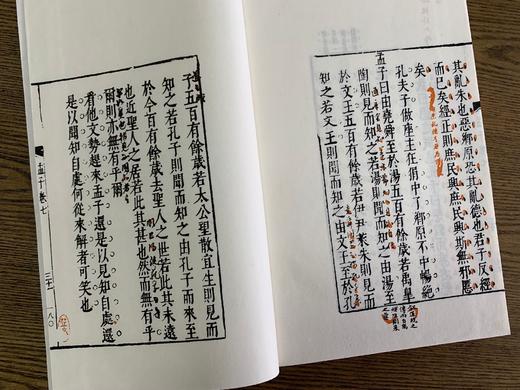 其亂朱也惡鄉原恐其亂德也君子反經
而已矣經正則庶民興庶民興斯無邪慝
矣
孔夫子做座主在狷中了鄉原不中暢絶
孟子曰由堯舜至於湯五百有餘歲若禹皐
陶則見而知之若湯則聞而知之由湯至
於文王五百有餘歲若伊尹萊朱則見而
知之若文王則聞而知之由文王至於孔
子五百有餘歲若太公望散宜生則見而
知之若孔子則聞而知之由孔子而來至
於今百有餘歲去聖人之世若此其未遠
也近聖人之居若此其甚也然而無有乎
爾則亦無有乎爾
看他文勢起來孟子還是以見知自處還
是以聞知自處何從來解者可笑也
孟子卷七
一八〇